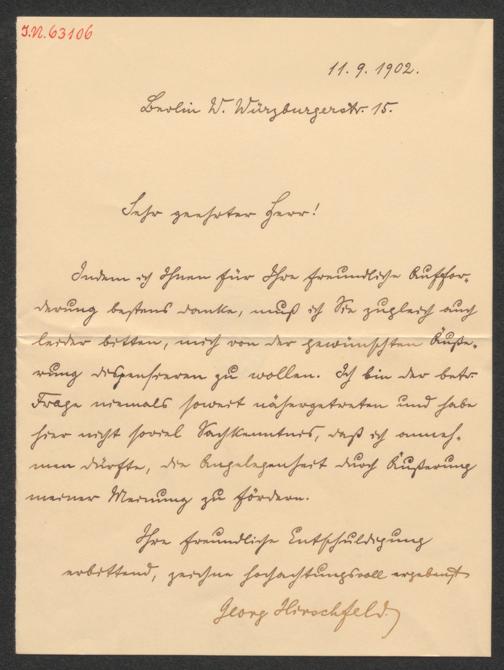 I.N. 63106
11. 9. 1902.
Berlin W. Würzburgerstr. 15.
Sehr geehrter Herr!
Indem ich Ihnen für Ihre freundliche Auffor-
derung bestens danke, muß ich Sie zugleich auch
leider bitten, mich von der gewünschten Äuße-
rung dispensieren zu wollen. Ich bin der betr.
Frage niemals soweit nähergetreten und habe
hier nicht soviel Sachkenntnis, daß ich anneh-
men dürfte, die Angelegenheit durch Äußerung
meiner Meinung zu fördern.
Ihre freundliche Entschuldigung
erbittend, zeichne hochachtungsvoll ergebenst
Georg Hirschfeld.